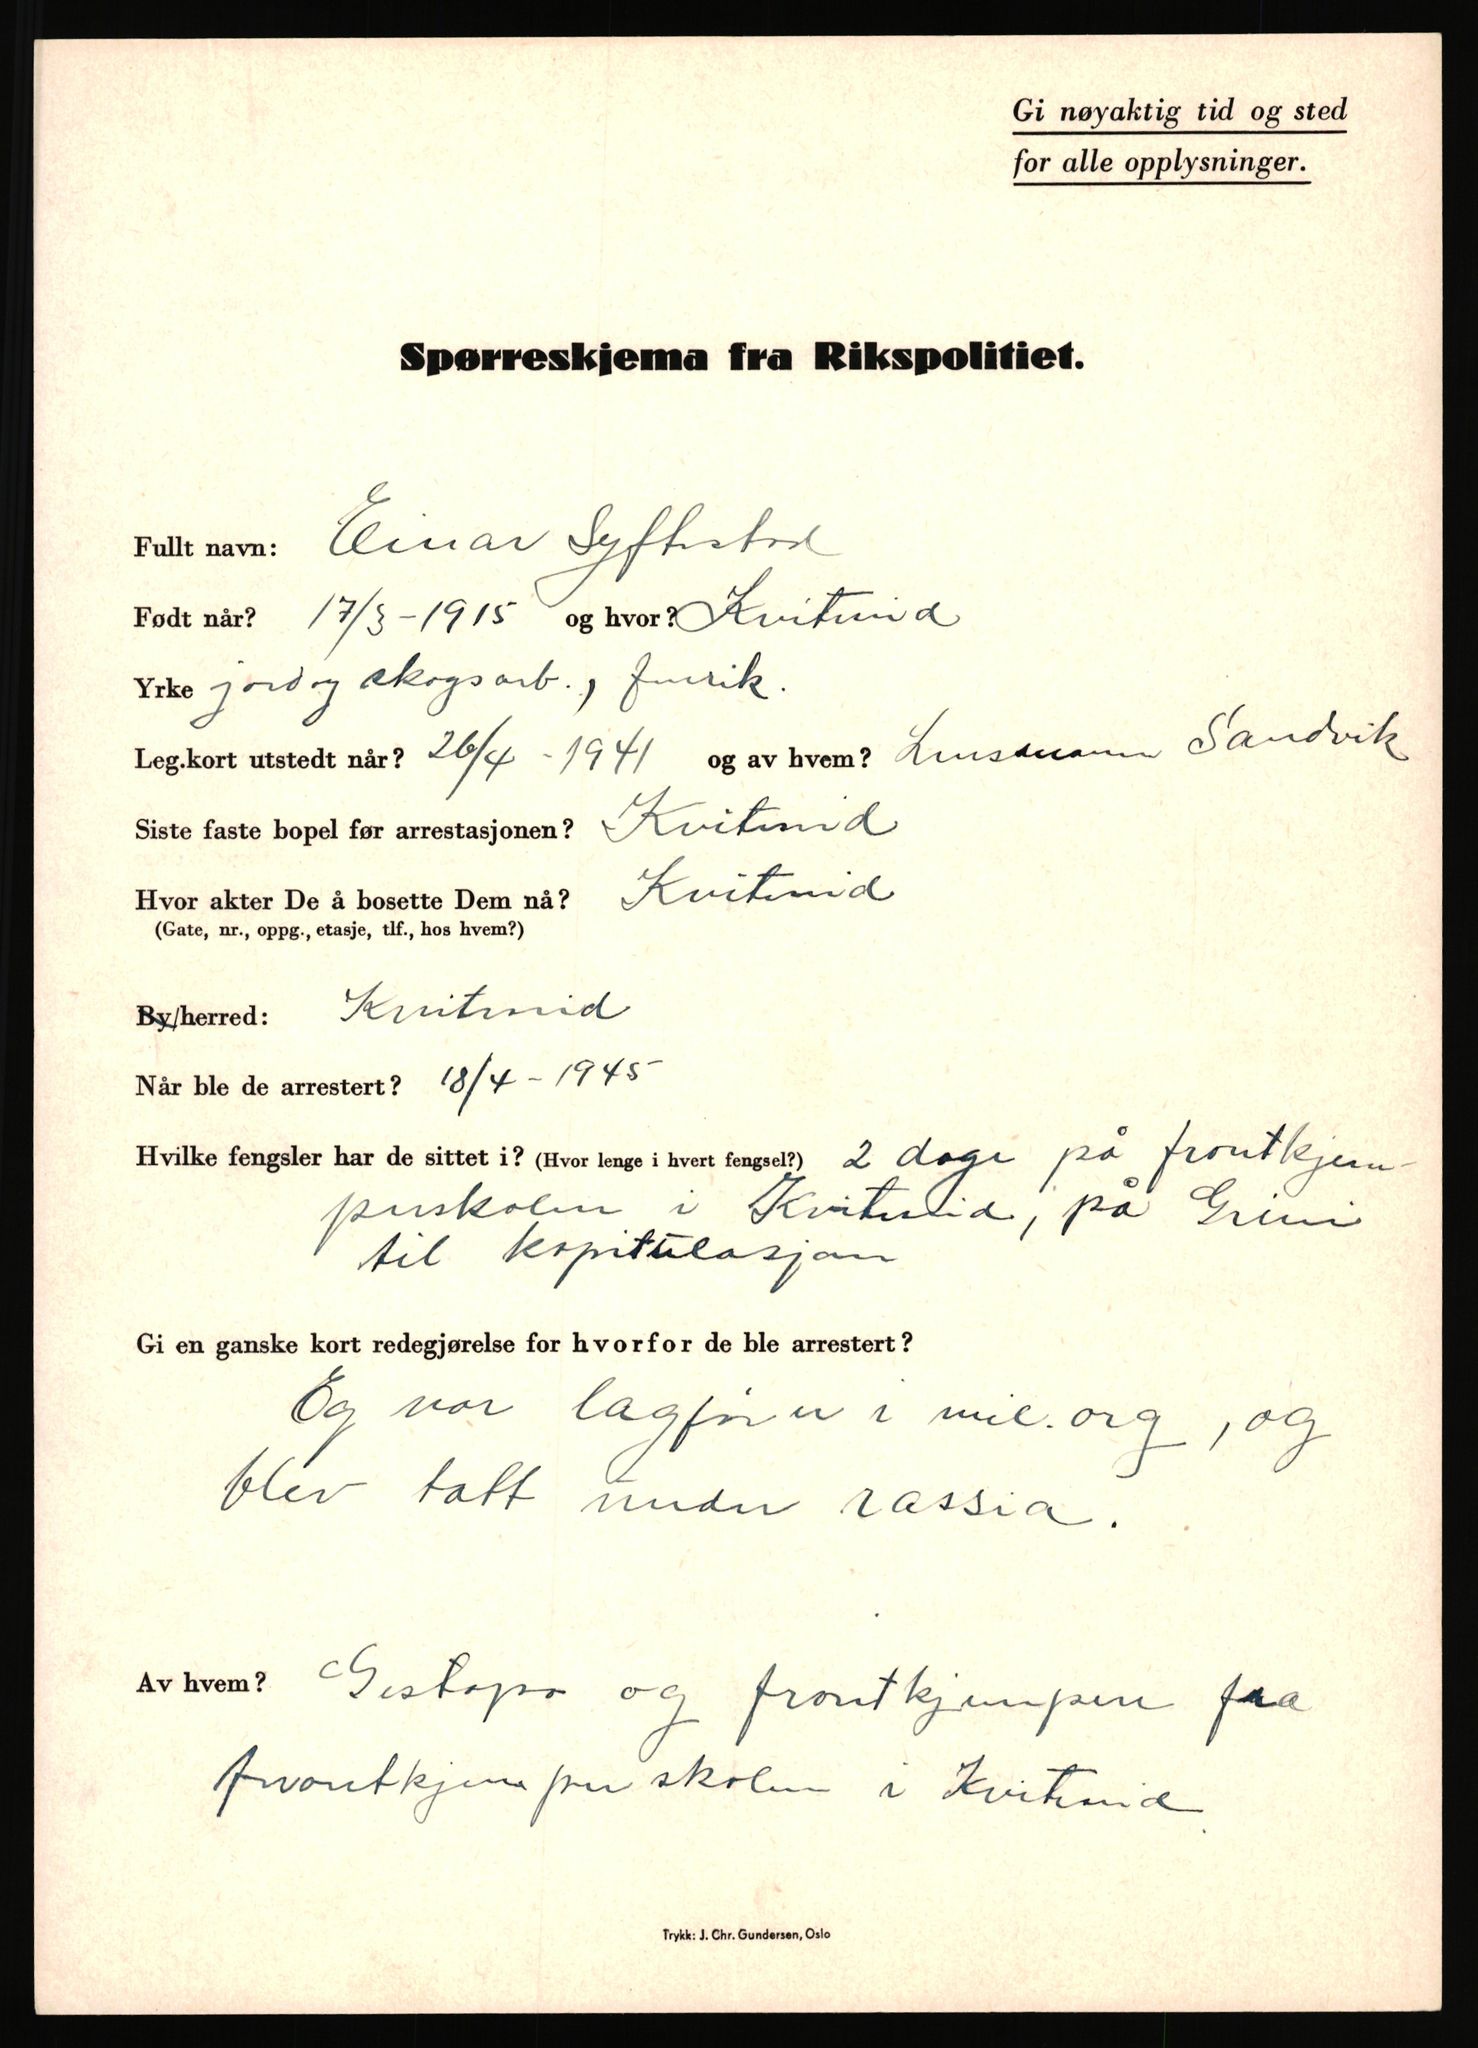 Gi nøyaktig tid og sted
for alle opplysninger.
Spørreskjema fra Rikspolitiet.
Fullt navn: Einar Syftestad
Født når? 17/3-1915 og hvor? Kviteseid
Yrke jord og skogsarb.,
Leg.kort utstedt når? 26/4-1941 og av hvem? Lensmann Sandvik
Siste faste bopel før arrestasjonen? Kviteseid
Hvor akter De å bosette Dem nå? Kviteseid
(Gate, nr., oppg., etasje, tlf., hos hvem?)
By/herred: Kviteseid
Når ble de arrestert? 18/4-1945
Hvilke fengsler har de sittet i? (Hvor lenge i hvert fengsel?) 2 dage på frontkjem-
perskolen i Kviteseid, på Grini
til kapitulasjon
Gi en ganske kort redegjørelse for hvorfor de ble arrestert?
Eg var lagfører i mil.org, og
blev tatt under rassia.
Av hvem? Gestapo og frontkjempere fra
frontkjemperskolen i Kviteseid
Trykk: J. Chr. Gundersen, Oslo